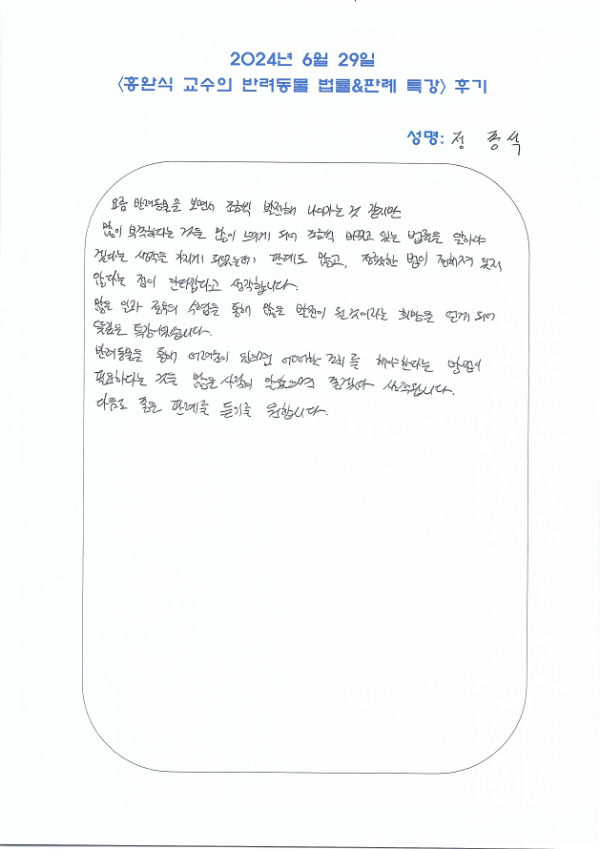 2024년 6월 29일
<홍완식 교수의 반려동물 법률&판례 특강> 후기
성명: 정 종식
요즘 반려동물을 보면서 조금씩 발전해 나아가는 것 같지만
많이 부족하다는 것을 많이 느끼게 되어 조금씩 바뀌고 있는 법률을 알아야
겠다는 생각을 가지게 되었는데, 판례도 많고, 정확한 법이 정해져 있지
않다는 점이 안타깝다고 생각합니다.
많은 수업을 통해 많은 발전이 될것이라는 희망을 되어
뜻깊은 특강이었습니다.
반려동물을 통해 어려움이 어떠한 조치를 해야한다는 방법이
필요하다는 것을 많은 사람이 좋겠다 생각됩니다.
다음도 좋은 판례를 듣기를 원합니다.